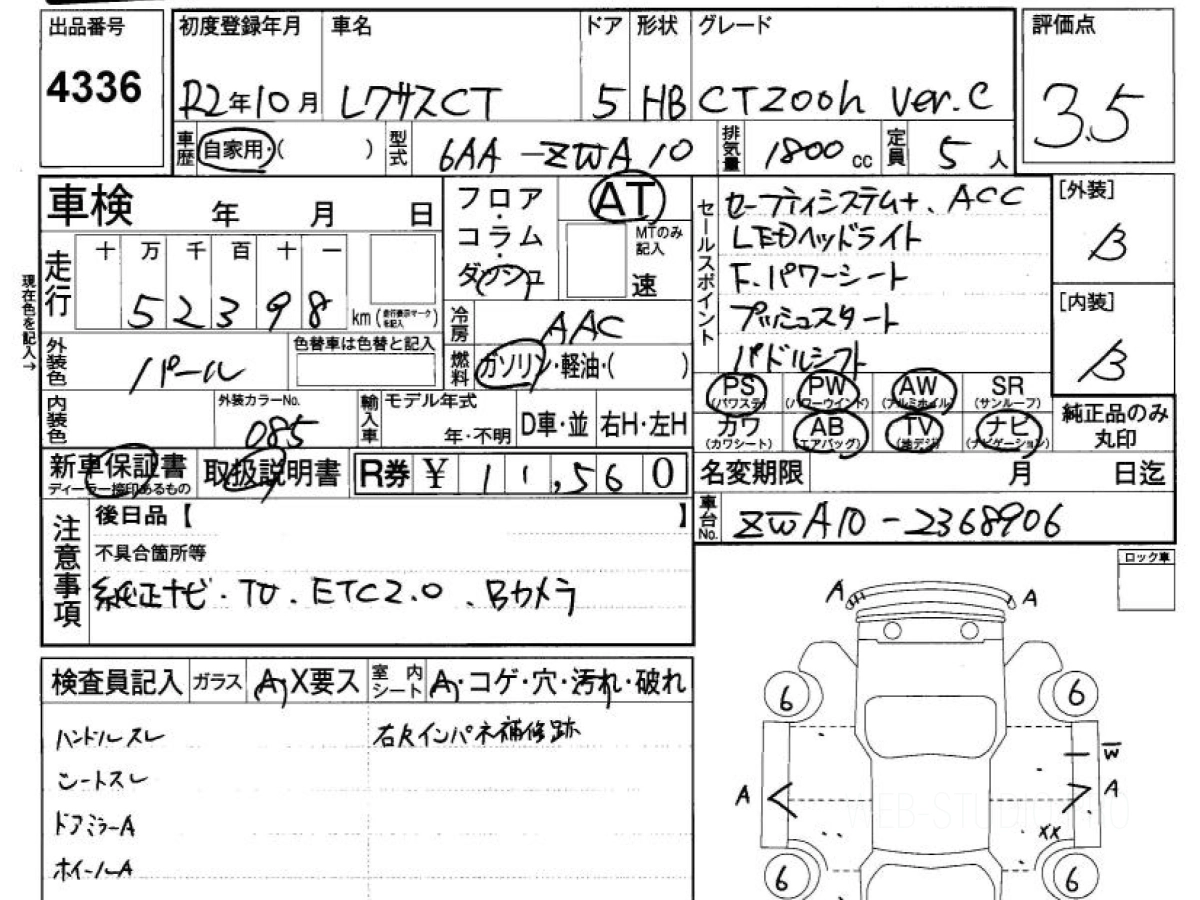 出品番号 初度登録年月 車名 ドア 形状 グレード 評価点
4336 R2年10月 レクサスCT 5 HB CT200h ver.C 3.5
車歴 自家用・( ) 型式 6AA-ZWA10 排気量 1800cc 定員 5人
車検 年 月 日
フロア・コラム・ダッシュ
AT
MTのみ記入
速
セールスポイント
セーフティシステム+、ACC
LEDヘッドライト
F.パワーシート
プッシュスタート
パドルシフト
[外装]
B
[内装]
B
現在色を記入→
走行 十 万 千 百 十 一
52398 km(走行表示マークを記入)
冷房 AAC
外装色 パール 色替車は色替と記入
燃料 ガソリン・軽油・( )
PS PW AW SR
(パワステ) (パワーウインド) (アルミホイル) (サンルーフ)
カワ AB TV ナビ
(カワシート) (エアバッグ) (地デジ) (ナビゲーション)
純正品のみ丸印
内装色 外装カラーNo. 085
輸入車 モデル年式 年・不明 D車・並 右H・左H
新車保証書 取扱説明書 R券 ¥ 11,560
ディーラー捺印あるもの
名変期限 月 日迄
車台No. ZWA10-2368906
注意事項
後日品【 】
不具合箇所等
純正ナビ・TV、ETC2.0、Bカメラ
ロック車
検査員記入 ガラス A・X要ス 室内シート A・コゲ・穴・汚れ・破れ
ハンドルスレ 右Rインパネ補修跡
シートスレ
ドアミラーA
ホイールA
A A
6 6
W
A A
XX
6 6
WEB-STUDIO